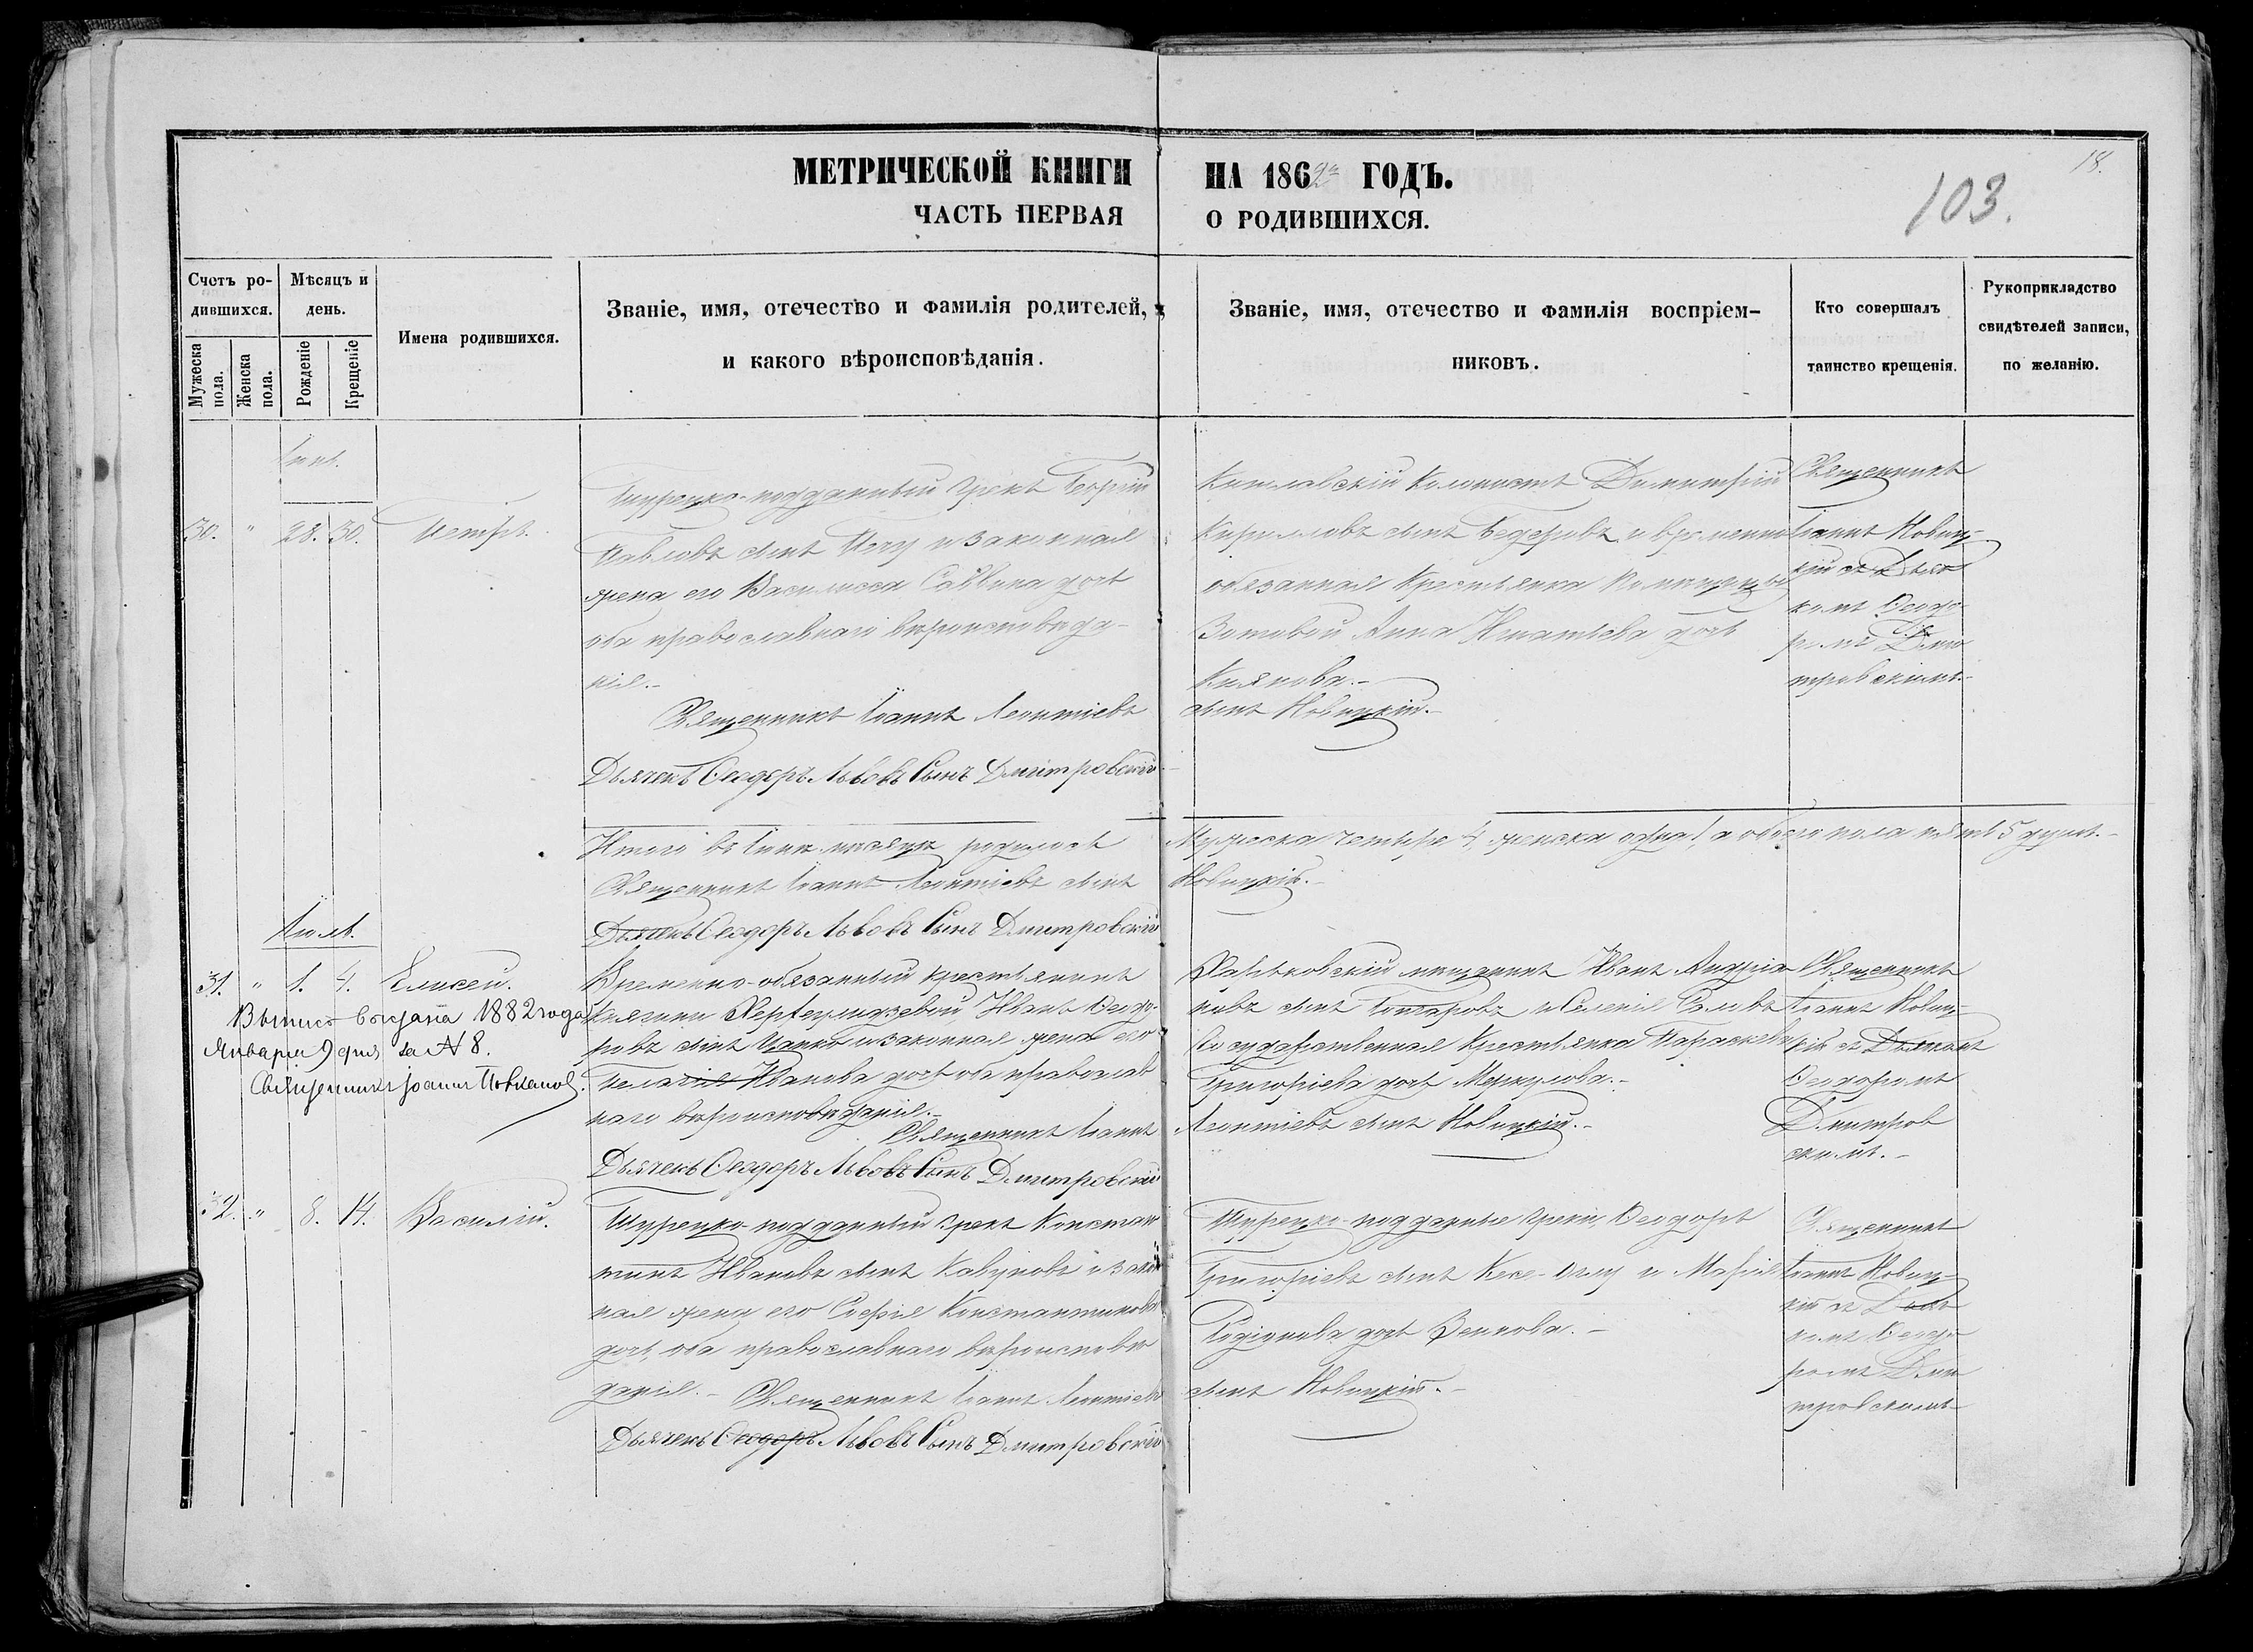 МЕТРИЧЕСКОЙ КНИГИ НА 1862й ГОДЪ.
18.
103.
ЧАСТЬ ПЕРВАЯ О РОДИВШИХСЯ.
Счетъ родившихся.
Мужеска пола.
Женска пола.
Мѣсяцъ и день.
Рожденіе
Крещеніе
Имена родившихся.
Званіе, имя, отечество и фамилія родителей, и какого вѣроисповѣданія.
Званіе, имя, отечество и фамилія воспріемниковъ.
Кто совершалъ таинство крещенія.
Рукоприкладство свидѣтелей записи, по желанію.
Іюнь.
30. " 28. 30. Петръ.
Турецко-подданный Грекъ Георгій
Павловъ сынъ и законная
жена его Василисса Саввина дочь
оба православнаго вѣроисповѣда-
нія.-
Священникъ Іоаннъ Леонтіевъ
Дьячекъ Ѳеодоръ Львовъ Сынъ Дмитровскій
колонистъ Димитрій
Кирилловъ сынъ и временно
обязанная крестьянка помѣщицы
Зотовой Анна Игнатьева дочь
сынъ Новицкій.-
Священникъ
Іоаннъ Новиц-
кій съ Дьяч
комъ Ѳеодо
ромъ Дми
тровскимъ.-
Итого въ Іюнѣ мѣсяцѣ родилось
Мужеска четыре 4, женска одна 1, а обоего пола пять 5 душъ.-
Священникъ Іоаннъ Леонтіевъ сынъ
Новицкій.-
Дьячекъ Ѳеодоръ Львовъ Сынъ Дмитровскій
Іюль.
31. " 1. 4. Елисей.
Выпись выдана 1882 года
Января 9 дня за № 8.
Священникъ Іоаннъ
Временно-обязанный крестьянинъ
Княгини Иванъ Ѳеодо-
ровъ сынъ и законная жена его
Пелагія Иванова дочь оба православ
наго вѣроисповѣданія.-
Священникъ Іоаннъ
Дьячекъ Ѳеодоръ Львовъ Сынъ Дмитровскій
Харьковскій мѣщанинъ Иванъ Андрія
новъ сынъ и
Государственная Крестьянка Параскева
Григоріева дочь Меркулова.-
Леонтіевъ сынъ Новицкій.-
Священникъ
Іоаннъ Новиц-
кій съ Дьячкомъ
Ѳеодоромъ
Дмитров
скимъ.-
32. " 8. 14. Василій.
Турецко-подданный Грекъ Констан
тинъ Ивановъ сынъ и закон
ная жена его Софія Константинова
дочь, оба православнаго вѣроисповѣ
данія.- Священникъ Іоаннъ Леонтіевъ
Дьячекъ Ѳеодоръ Львовъ Сынъ Дмитровскій
Турецко-подданные Греки, Ѳеодоръ
Григоріевъ сынъ и Марія
Родіонова дочь
сынъ Новицкій.-
Священникъ
Іоаннъ Новиц-
кій съ Дьяч
комъ Ѳеодо
ромъ Дми
тровскимъ